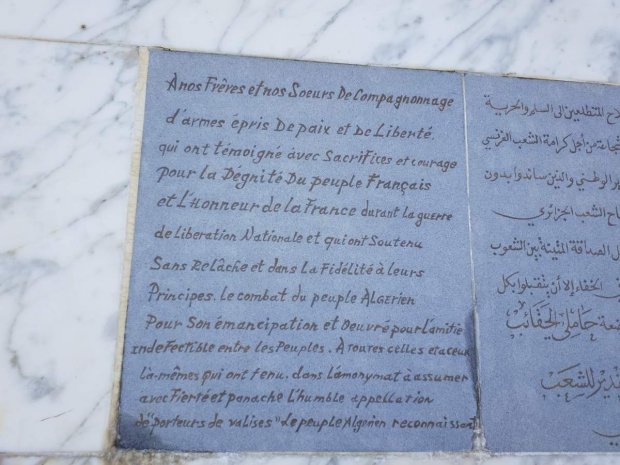 A nos Frères et nos Soeurs De Compagnonnage
d'armes épris De paix et De Liberté.
qui ont témoigné avec Sacrifices et courage
pour la Dégnité Du peuple Français
et L'Honneur de la France durant la guerre
de Liberation Nationale et qui ont Soutenu
Sans Relâche et dans la Fidélité à leurs
Principes. le combat du peuple ALGÉRIEN
Pour Son émancipation et Oeuvré pour L'amitié
indeFectible entre les Peuples. À toutes celles et aceux
là-mêmes qui ont tenu. dans L'anonymat à assumer
avec Fierté et panache L'humble appellation
de "porteurs de valises" Le peuple Algérien reconnaissant
المتطلعين إلى السلم والحرية
من أجل كرامة الشعب الفرنسي
الوطني والذين ساندوا بدون
الشعب الجزائري
الصداقة المتينة بين الشعوب
الخفاء إلا أن يتقبلوا بكل
حاملي الحقائب
للشعب